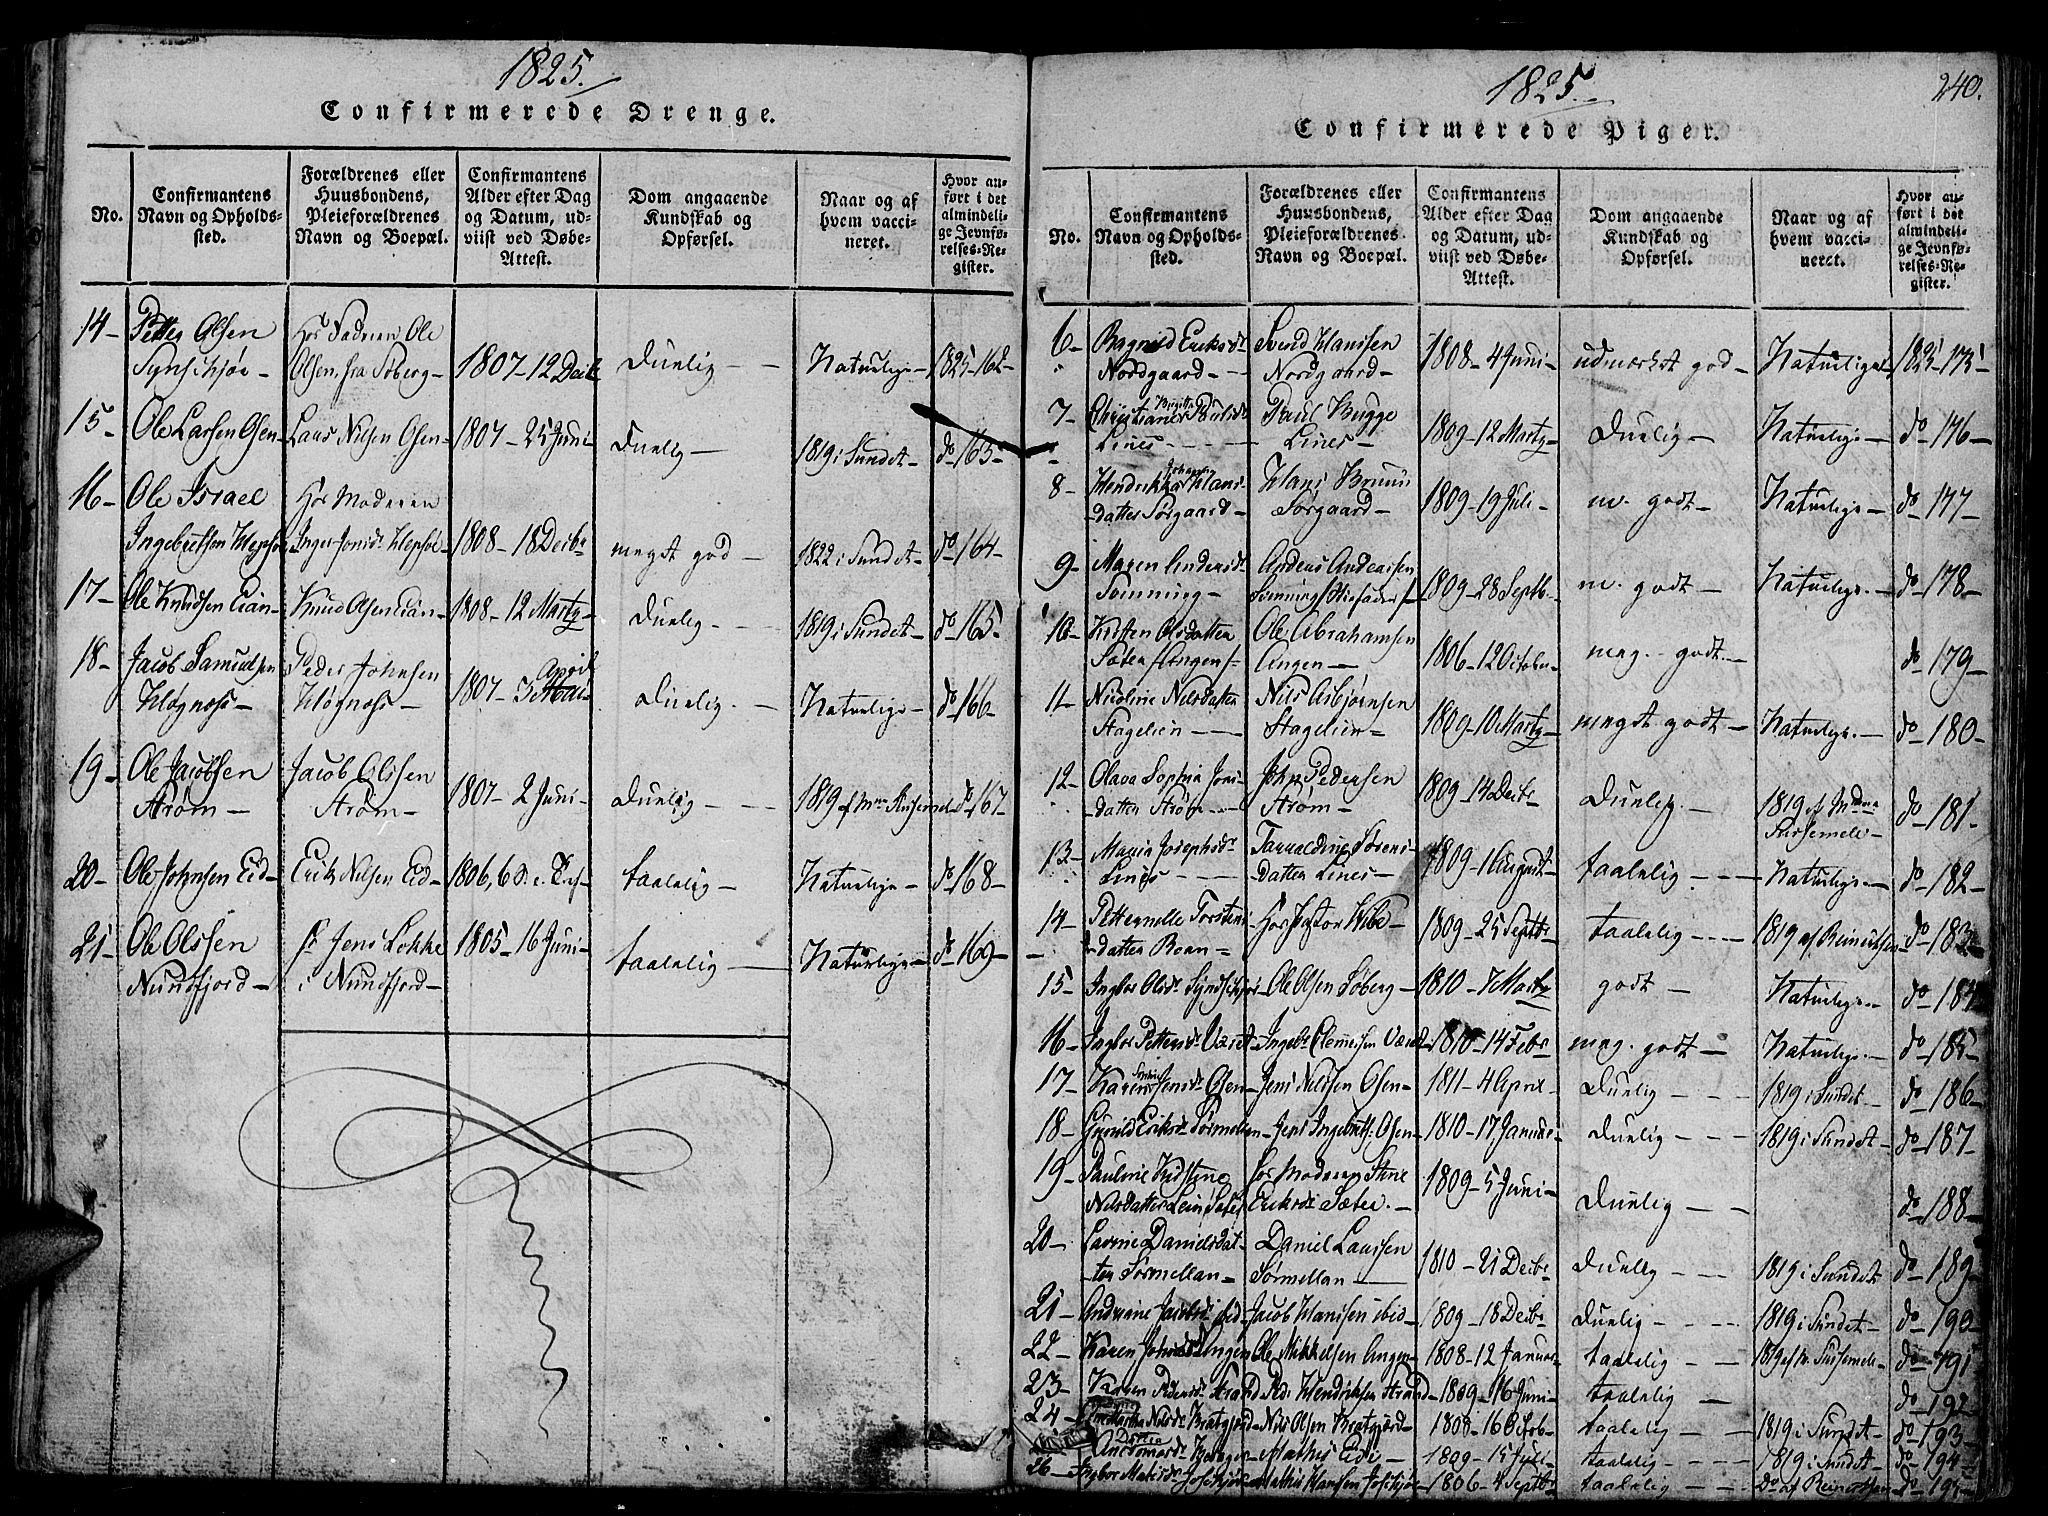 1825.
Confirmerede Drenge.
No.
Confirmantens Navn og Opholdssted.
Forældrenes eller Huusbondens, Pleieforældrenes Navn og Boepæl.
Confirmantens Alder efter Dag og Datum, udviist ved Døbe-Attest.
Dom angaaende Kundskab og Opførsel.
Naar og af hvem vaccineret.
Hvor anført i det almindelige Jevnførelses-Register.
14 - Petter Olsen Hos Faderen Ole
Olsen fra Soberg - 1807 - 12 Decbr Duelig - - Naturlige - 1825 - 162 -
15 - Ole Larsen Osen - Lars Nilsen Osen - 1807 - 25 Juni - Duelig - 1819 i Sundet - do 163 -
16 - Ole Israel Hos Moderen
Ingebretsen Hepsøe Inger Jonsdr Hepsøe - 1808 - 18 Decbr meget god - 1822 i Sundet - do 164 -
17 - Ole Knudsen Eian - Knud Olsen Eian - 1808 - 12 Martz - Duelig - - 1819 i Sundet - do 165 -
18 - Jacob Samuelsen Peder Johnsen April
Høgnæss - Høgnæss - 1807 - Duelig - Naturlige - do 166 -
19 - Ole Jacobsen Jacob Olssen
Strøm - Strøm - 1807 - 2 Juni - Duelig - - 1819 af do 167 -
20 - Ole Johnsen Eid - Erik Nilsen Eid - 1806, 6 taalelig - Naturlige - do 168 -
21 - Ole Olssen Jens Løkke 1805 - 16 Juni - taalelig - Naturlige - do 169 -
Nundfjord - i Nundfjord -
1825.
240.
Confirmerede Piger.
No.
Confirmantens Navn og Opholdssted.
Forældrenes eller Huusbondens, Pleieforældrenes Navn og Boepæl.
Confirmantens Alder efter Dag og Datum, udviist ved Døbe-Attest.
Dom angaaende Kundskab og Opførsel.
Naar og af hvem vaccineret.
Hvor anført i det almindelige Jevnførelses-Register.
6 - Ragnild Eriksdr Svend Hanssen
Nordgaard - Nordgaard - 1808 - 4 Juni - udmærket god - Naturlige 1825 - 175
7 - Christiane Birgitta Paulsdr Paul Bugge
Lines - Lines - 1809 - 12 Martz - Duelig - Naturlige - do 176 -
8 - Hendrikka Johanna Hans- Hans Bruun
datter Sørgaard - Sørgaard - 1809 - 19 Juli - m. godt - Naturlige - do 177 -
9 - Maren Andersdr Anders Andersen
Tømming - Tømming 1809 - 28 Septb. m. godt - Naturlige - do 178 -
10 - Kirsten Olsdatter Ole Abrahamsen
Angen - 1806 - 12 October meg. godt - do 179 -
11 - Nicoline Nilsdatter Nils Asbjørnsen
Hagelien - Hagelien - 1809 - 10 Martz - meget godt - Naturlige - do 180 -
12 - Olava Sophia Jons- John Pedersen
datter Strøm - Strøm - 1809 - 14 Decbr Duelig - 1819 af do 181 -
13 - Maria Josephsdr Sørens-
Lines - datter Lines - 1809 - 1 August - taalelig - Naturlige - do 182 -
14 - Petternelle Torstens- Hos Pastor Wibe -
datter Roan - 1809 - 25 Septbr taalelig - 1819 af Reinertsen do 183 -
15 - Ingbor Olsdr Ole Olsen Søberg - 1810 - 7 Martz godt - Naturlige - do 184
16 - Ingbor Pettersdr Været - 1810 - 14 Febr meg. godt - Naturlige - do 185 -
17 - Karen Jensdr Osen - Jens Nilssen Osen - 1811 - 4 April Duelig - 1819 i Sundet - do 186 -
18 - Gunild Eriksdr Sørmellan - Jens Ingebrtt: Osen - 1810 - 17 Januar Duelig - - 1819 i Sundet - do 187 -
19 - Pauline Kristine hos Moderen Stine
Nilsdatter Eriksdr Sæter - 1809 - 5 Juni - Duelig - - do 188 -
20 - Lavine Danielsdat- Daniel Larssen
ter Sørmellan - Sørmellan - 1810 - 21 Decbr Duelig - - 1819 i Sundet do 189 -
21 - Andrine Jacobsdr Eid - Jacob Hanssen ibid - 1809 - 18 Decbr Duelig - - 1819 i Sundet - do 190 -
22 - Karen Johnsdr Angen Ole Mikkelsen Angen - 1808 - 12 Januar taalelig - - 1819 af do 191
23 - Karen Pedersdr Strand Peder Hendriksen Strand - 1809 - 16 Juni - taalelig - - do 192
24 - Nilsdr Bratgjerd - Nils Olsen Bratgjerd - 1808 - 16 Octob - taalelig - 1819 i Sundet - do 193 -
Dortea Mathis Eide - 1809 - 15 Juli - taalelig - 1819 i Sundet - do 194 -
26 - Ingbor Matisdr Mathis Hanssen 1806 - 4 Septbr taalelig - do af Reinertsen do 195 -